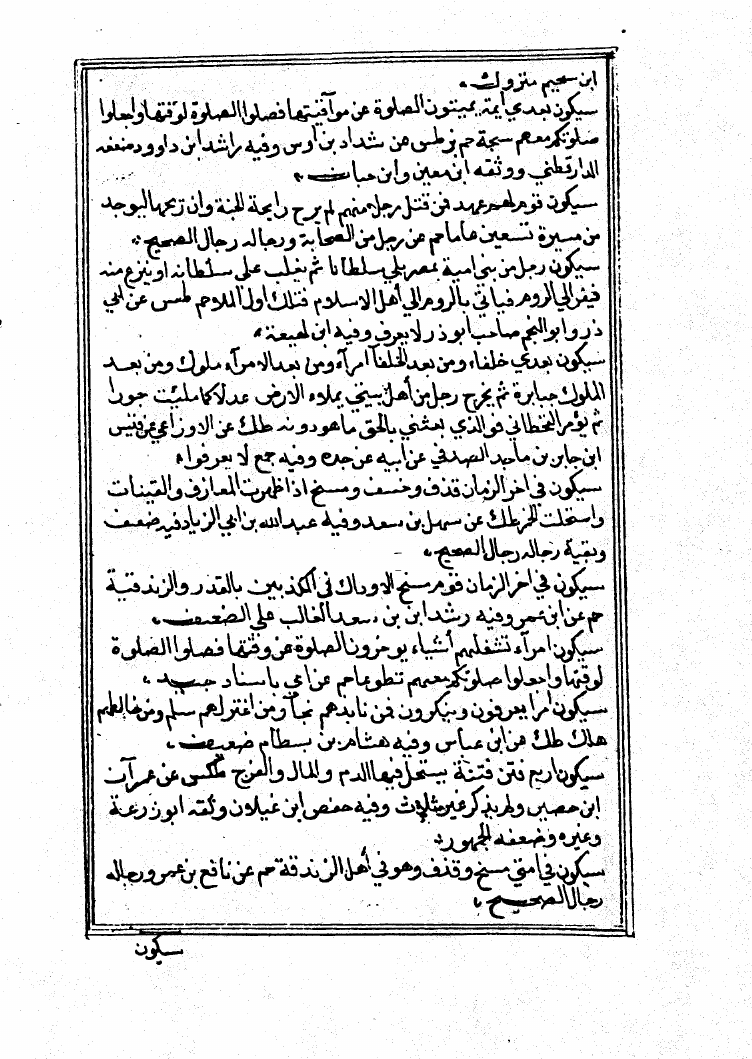 ابن سحيم متروك
سيكون بعدي ائمة يميتون الصلوة عن مواقيتها فصلوا الصلوة لوقتها واجعلوا
صلوتكم معهم سبحة حم بز طس عن شداد بن اوس وفيه راشد ابن داوود ضعفه
الدارقطني ووثقه ابن معين وابن حبان
سيكون قوم لهم عهد فمن قتل رجل منهم لم يرح رايحة الجنة وان ريحها ليوجد
من مسيرة تسعين عاما حم عن رجل من الصحابة ورجاله رجال الصحيح
سيكون رجل من بنى امية بمصر يلي سلطانا ثم يغلب على سلطانه او ينزع منه
فيفر الي الروم فياتي بالروم الي أهل الاسلام فتلك اول الملاحم طس عن ابي
ذر وابو النجم صاحب ابو ذر لا يعرف وفيه ابن لهيعة
سيكون بعدي خلفاء ومن بعد الخلفا امرآء ومن بعد الامرآء ملوك ومن بعد
الملوك جبابرة ثم يخرج رجل من أهل بيتي يملاء الارض عدلا كما ملئت جورا
ثم يؤمر القحطاني فوالذي بعثني بالحق ما هو دونه طك عن الاوزاعي عن قيس
ابن جابر بن ماجد الصدفي عن ابيه عن جده وفيه جمع لا يعرفوا
سيكون في اخر الزمان قذف وخسف ومسخ اذا ظهرت المعازف والقينات
واستحلت الخمر طك عن سهل بن سعد وفيه عبد الله بن ابي الزياد فيه ضعف
وبقية رجاله رجال الصحيح
سيكون في اخر الزمان قوم مسخ الا وذاك في المكذبين بالقدر والزندقية
حم عن ابن عمر وفيه رشد ابن بن سعد الغالب علي الضعيف
سيكون امرآء تشغلهم أشياء يوخرون الصلوة عن وقتها فصلوا الصلوة
لوقتها واجعلوا صلوتكم معهم تطوعا حم عن ابي باسناد جيد
سيكون امرا يعرفون وينكرون فمن نابدهم نجا ومن اعتزلهم سلم ومن خالطهم
هلك طك عن ابن عباس وفيه هشام بن بسطام ضعيف
سيكون اربع فتن فتنة يستحل فيها الدم والمال والفرج عن عمران
ابن حصين ولم يذكر غير ثلاث وفيه حفص ابن غيلان وثقه ابو زرعة
وغيره وضعفه الجمهور
سيكون في امتي مسخ وقذف وهو في أهل الزندقة حم عن نافع بن عمر ورجاله
رجال الصحيح
سيكون